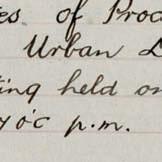 es of Proc
Urban D
ing held on
7 o'c p.m.